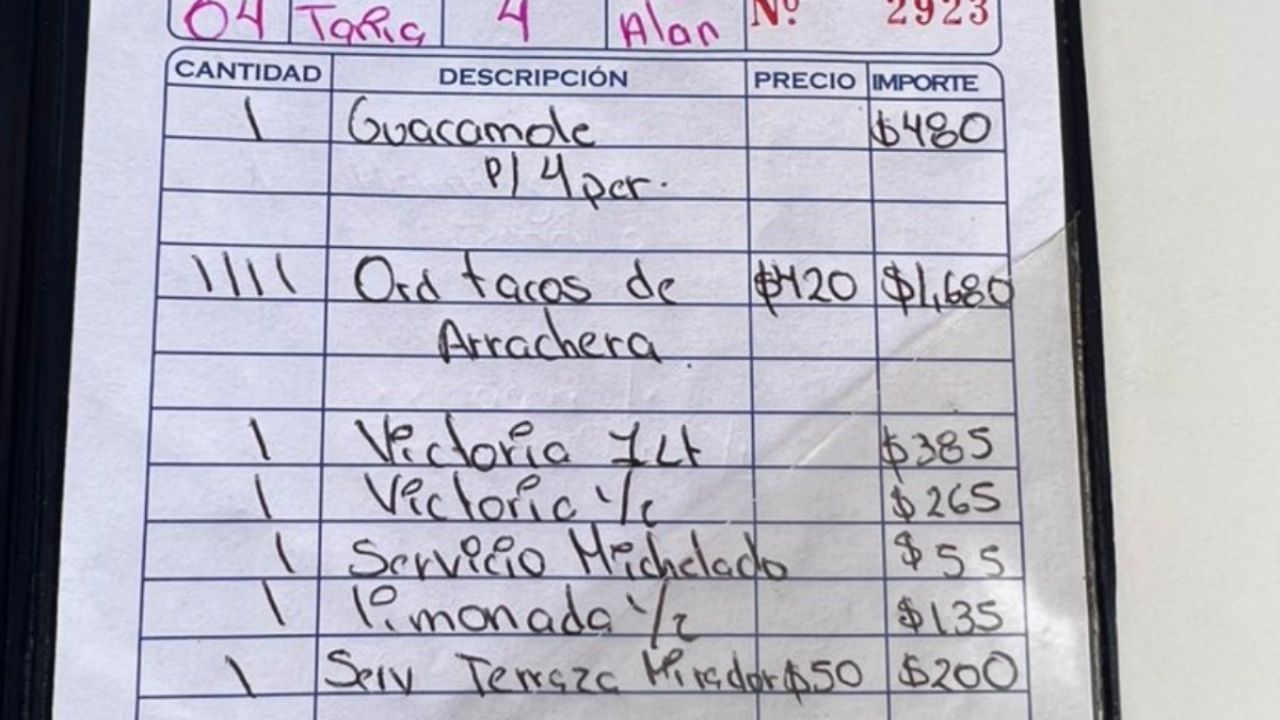 04 Tania 4 Alan Nº 2923
CANTIDAD DESCRIPCIÓN PRECIO IMPORTE
1 Guacamole $480
p/ 4 per.
1111 Ord tacos de $420 $1,680
Arrachera
1 Victoria 1Lt $385
1 Victoria 1/2 $265
1 Servicio Michelado $55
1 limonada 1/2 $135
1 Serv Terraza Mirador $50 $200